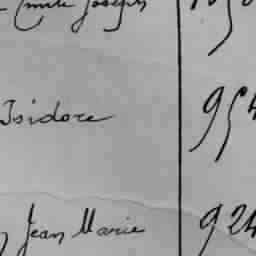 Emile Joseph
Isidore 954
Jean Marie 924